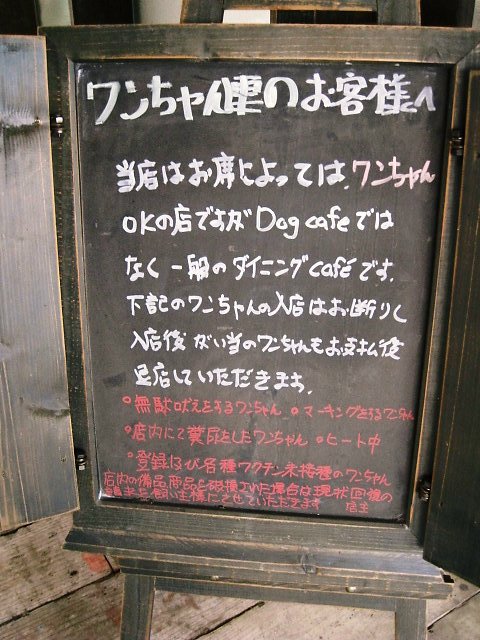 ワンちゃん連のお客様へ
当店はお席によっては、ワンちゃん
OKの店ですがDog cafeでは
なく一般のダイニングcaféです。
下記のワンちゃんの入店はお断りし
入店後がい当のワンちゃんもお支払後
退店していただきます。
○無駄吠えをするワンちゃん ○マーキングをするワンちゃん
○店内にて糞尿をしたワンちゃん ○ヒート中
○登録及び各種ワクチン未接種のワンちゃん
店内の備品商品を破損された場合は現状回復の
請求を飼い主様にさせていただきます 店主